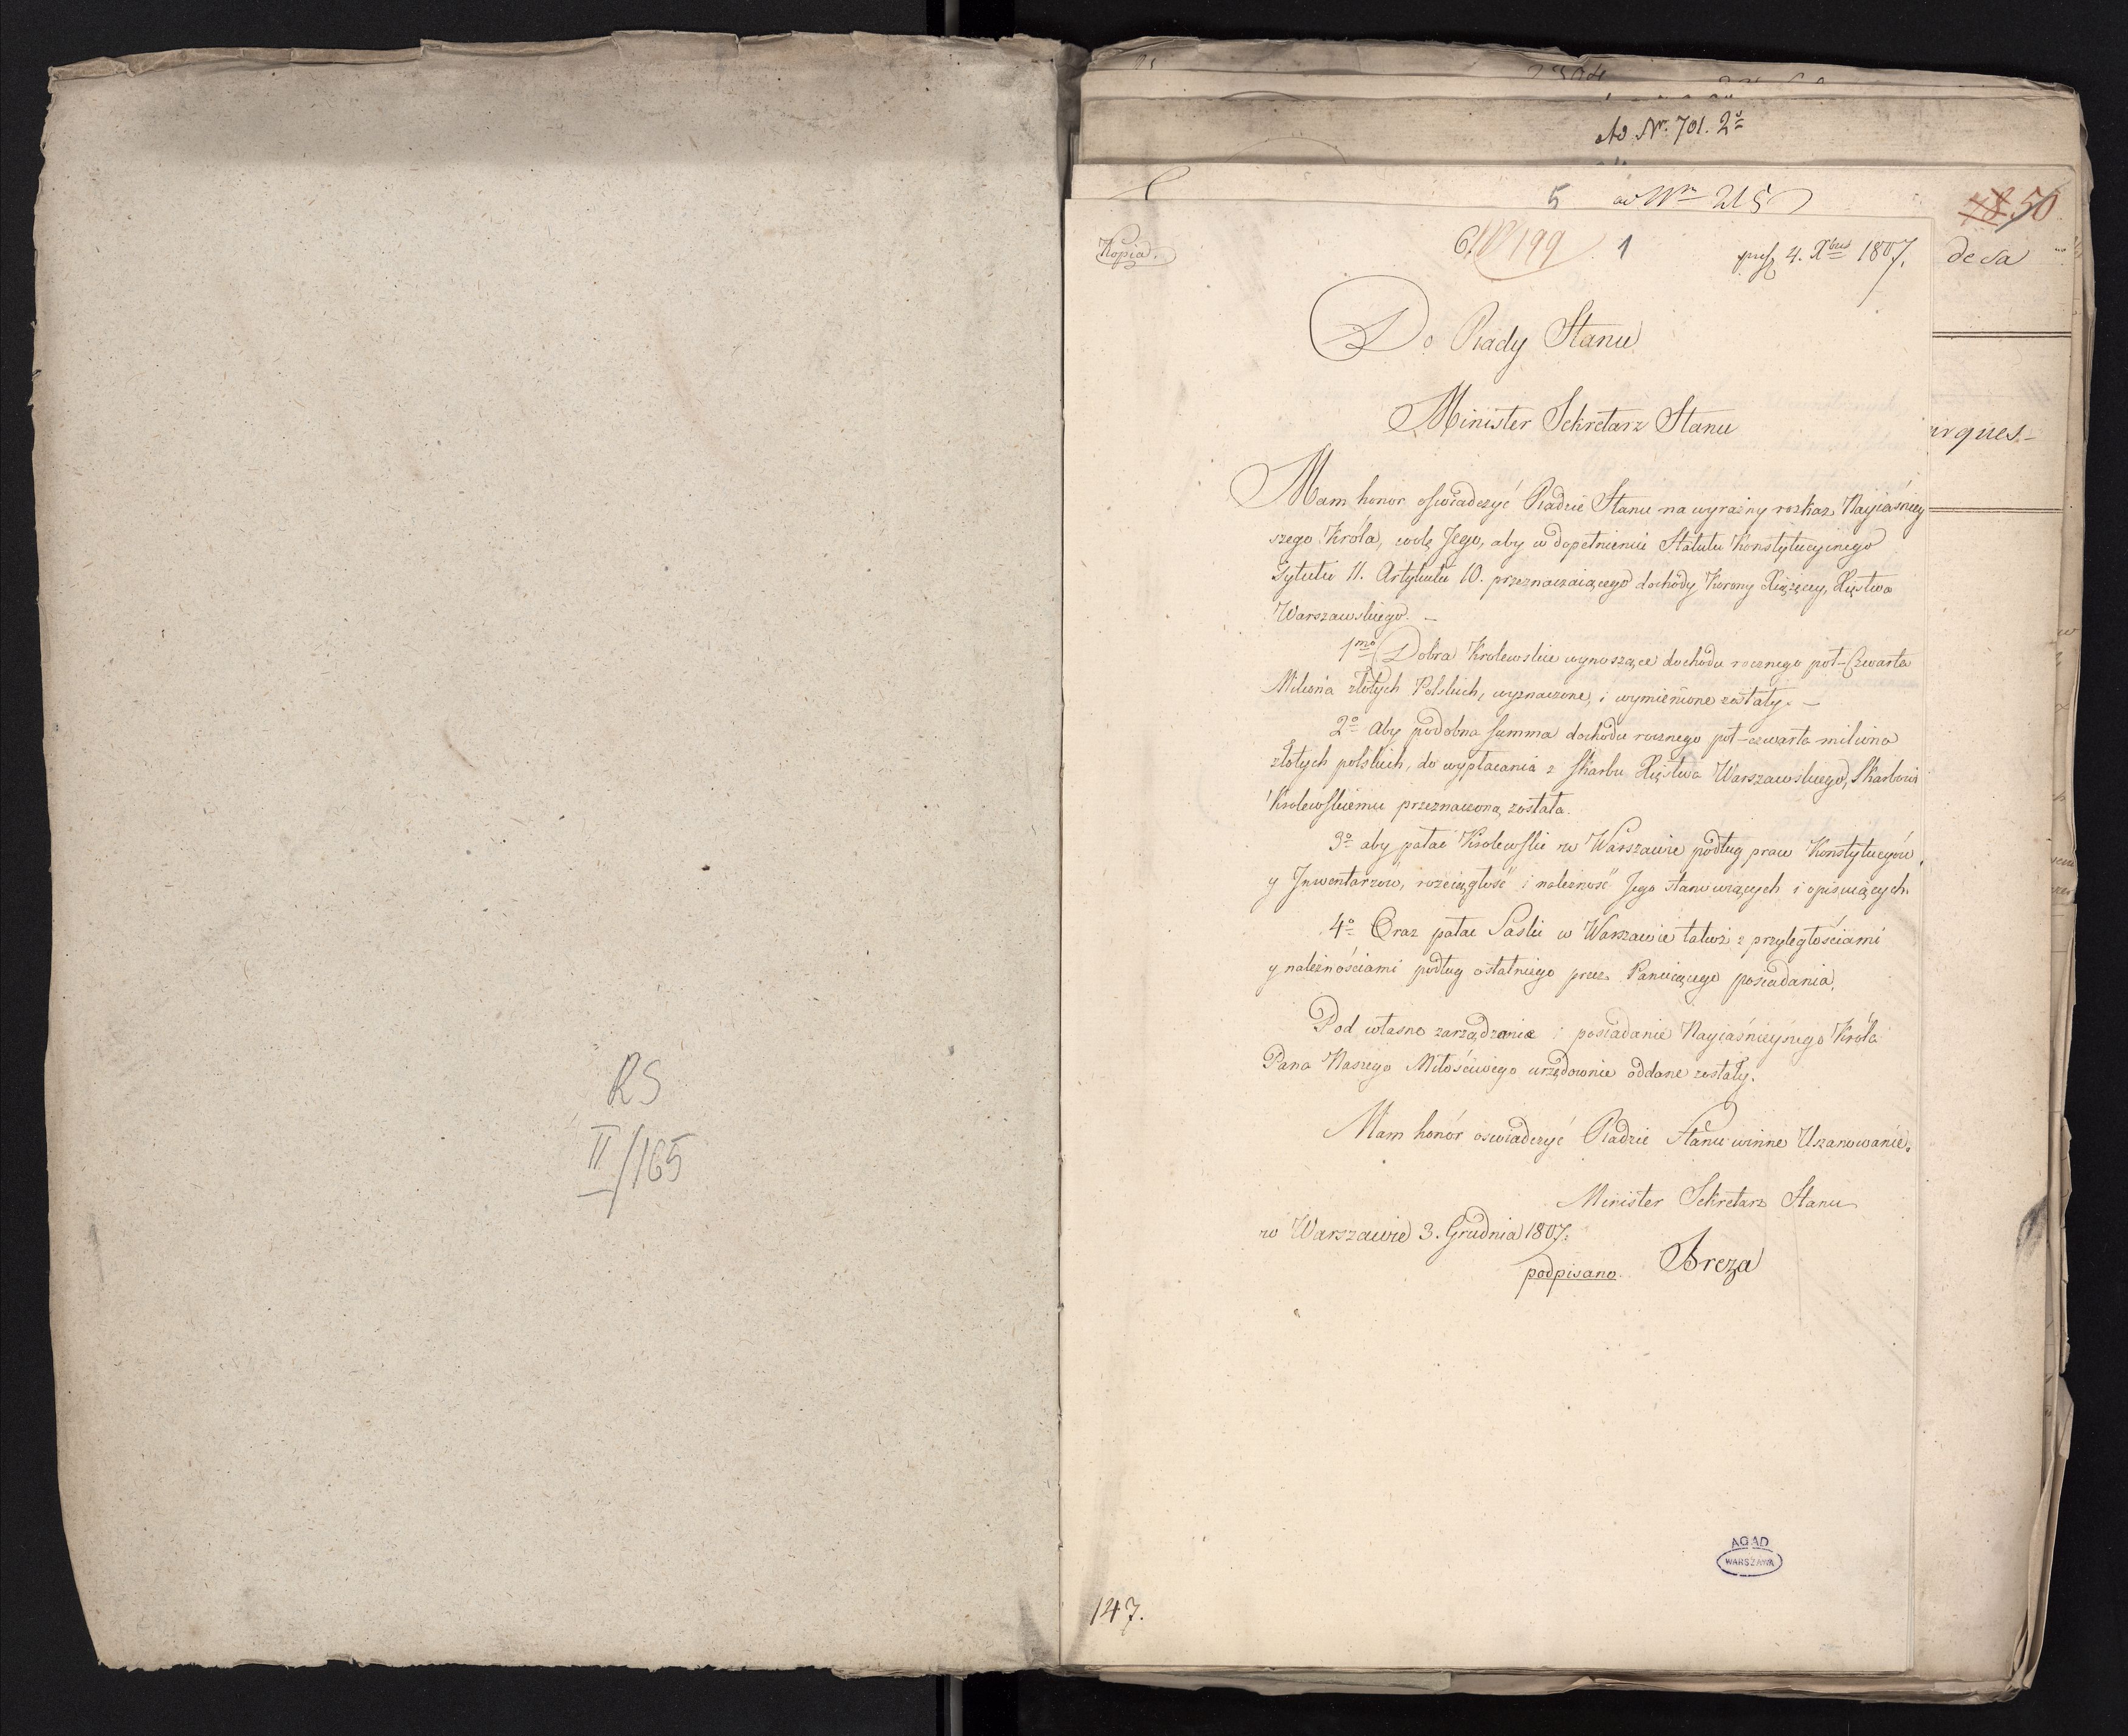 RS
II/165
Ad Nr. 701. 2o
5 ad Nro 215
48 50
de sa
arques-
Kopia.
6. N 199 1 pres. 4. Xbris 1807.
Do Rady Stanu
Minister Sekretarz Stanu
Mam honor oswiadczyć Radzie Stanu na wyraźny rozkaz Nayiaśniey
szego Króla, wolę Jego, aby w dopełnieniu Statutu Konstytucyinego
Tytułu 11. Artykułu 10. przeznaczaiącego dochody Korony Xiążęcey, Xięstwa
Warszawskiego. –
1mo Dobra Krolewskie wynoszące dochodu rocznego poł-Czwarta
Miliona złotych Polskich, wyznaczone, i wymienione zostały. –
2o Aby podobna summa dochodu rocznego poł-czwarta miliona
złotych polskich, do wypłacania z Skarbu Xięstwa Warszawskiego, Skarbowi
Krolewskiemu przeznaczona została.
3o aby pałac Krolewski w Warszawie podług praw Konstytucyów,
y Inwentarzow, rozciągłość i należność Jego stanowiących i opisuiących.
4o Oraz pałac Saski w Warszawie takoż z przyległościami
y należnościami podług ostatniego przez Panuiącego posiadania,
Pod własne zarządzanie i posiadanie Nayiaśnieyszego Króla
Pana Naszego Miłościwego urzędownie oddane zostały.
Mam honór oswiadczyć Radzie Stanu winne Uszanowanie.
Minister Sekretarz Stanu
w Warszawie 3. Grudnia 1807.
podpisano. Breza
AGAD
WARSZAWA
147.